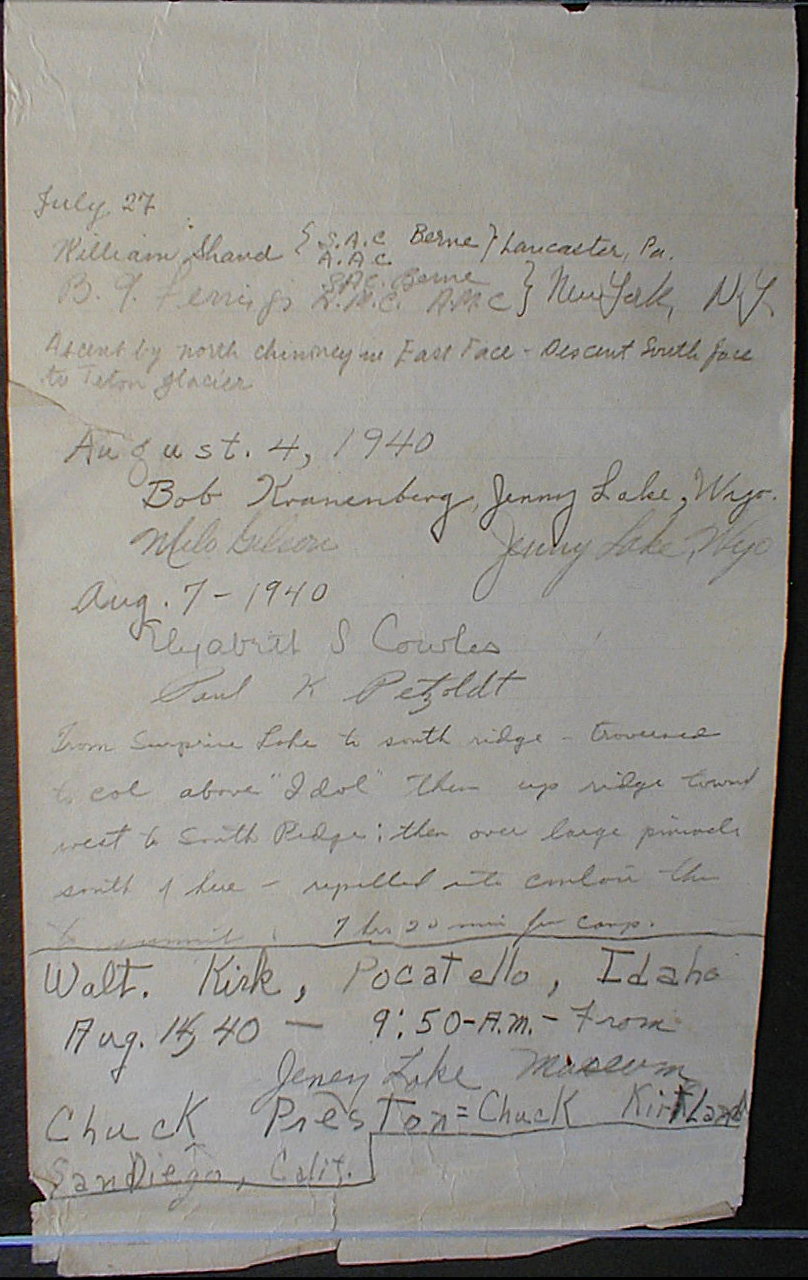 July 27
William Shand { S.A.C Berne } Lancaster, Pa.
A.A.C
S.A.C. Berne
B. G. A.M.C } New York, N.Y.
Ascent by north chimney in East Face - Descent South face
to Teton Glacier
August. 4, 1940
Bob Kranenberg, Jenny Lake, Wyo.
Milo Jenny Lake, Wyo
Aug. 7 - 1940
Elizabeth S Cowles
Paul K Petzoldt
From Surprise Lake to south ridge - traversed
to col above "Idol" then up ridge toward
west to South Ridge; then over large pinnacle
south of here - repelled into then
to summit. 7 hrs 20 min for camp.
Walt. Kirk, Pocatello, Idaho
Aug. 14, 40 — 9:50-A.M.- From
Jeney Lake Museum
Chuck Preston = Chuck Kirtland
San Diego, Calif.